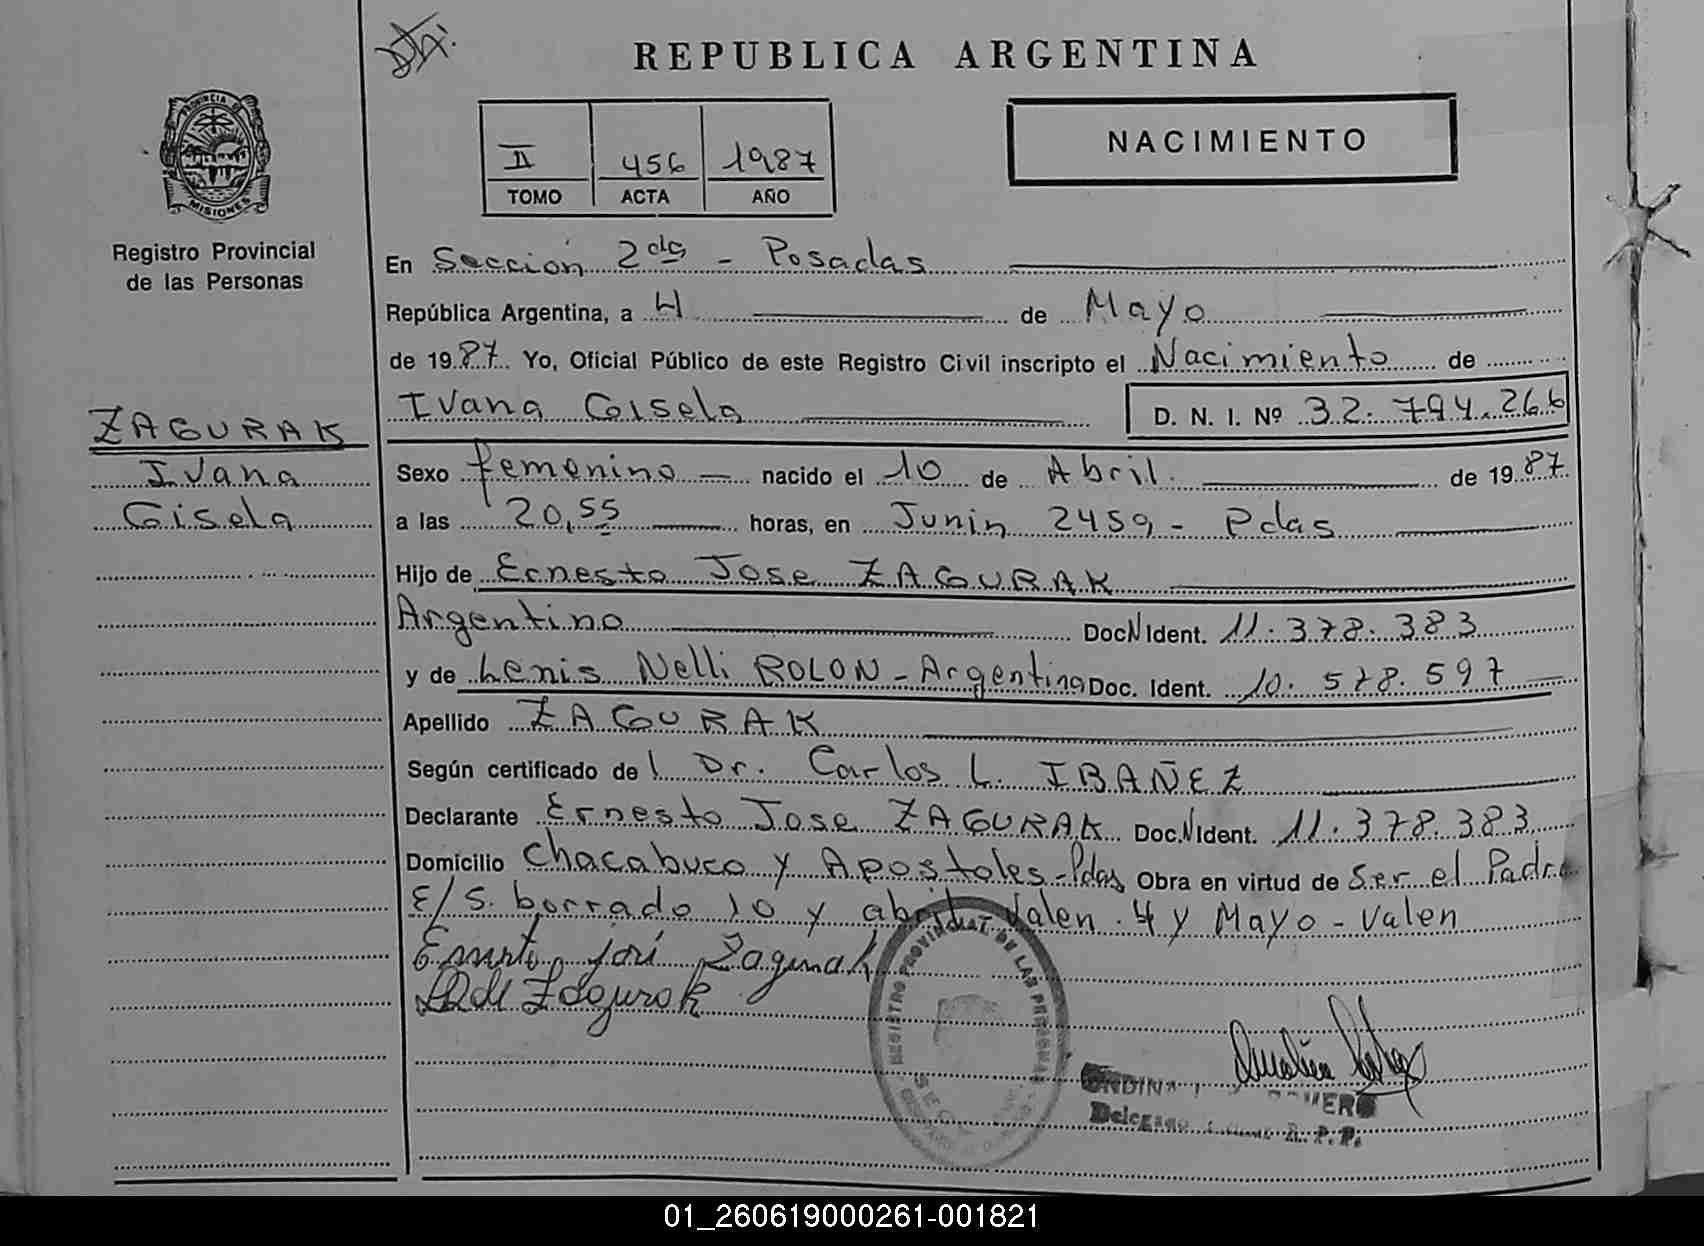 REPUBLICA ARGENTINA
PROVINCIA DE
MISIONES
Registro Provincial
de las Personas
II 456 1987
TOMO ACTA AÑO
NACIMIENTO
ZAGURAK
Ivana
Gisela
En Sección 2da - Posadas
República Argentina, a 4 de Mayo
de 1987 Yo, Oficial Público de este Registro Civil inscripto el Nacimiento de
Ivana Gisela D. N. I. Nº 32.794.266
Sexo femenino nacido el 10 de Abril de 1987
a las 20,55 horas, en Junin 2459 - Pdas
Hijo de Ernesto Jose ZAGURAK
Argentino Doc. N Ident. 11.378.383
y de Lenis Nelli ROLON - Argentina Doc. Ident. 10.578.597
Apellido ZAGURAK
Según certificado del Dr. Carlos L. IBAÑEZ
Declarante Ernesto Jose ZAGURAK Doc. N Ident. 11.378.383
Domicilio Chacabuco y Apostoles - Pdas Obra en virtud de Ser el Padre
E/S. borrado 10 y abril - Valen . 4 y Mayo - Valen
Zagurak
de Zagurak
REGISTRO PROVINCIAL DE LAS PERSONAS
R. P. P.
01_260619000261-001821